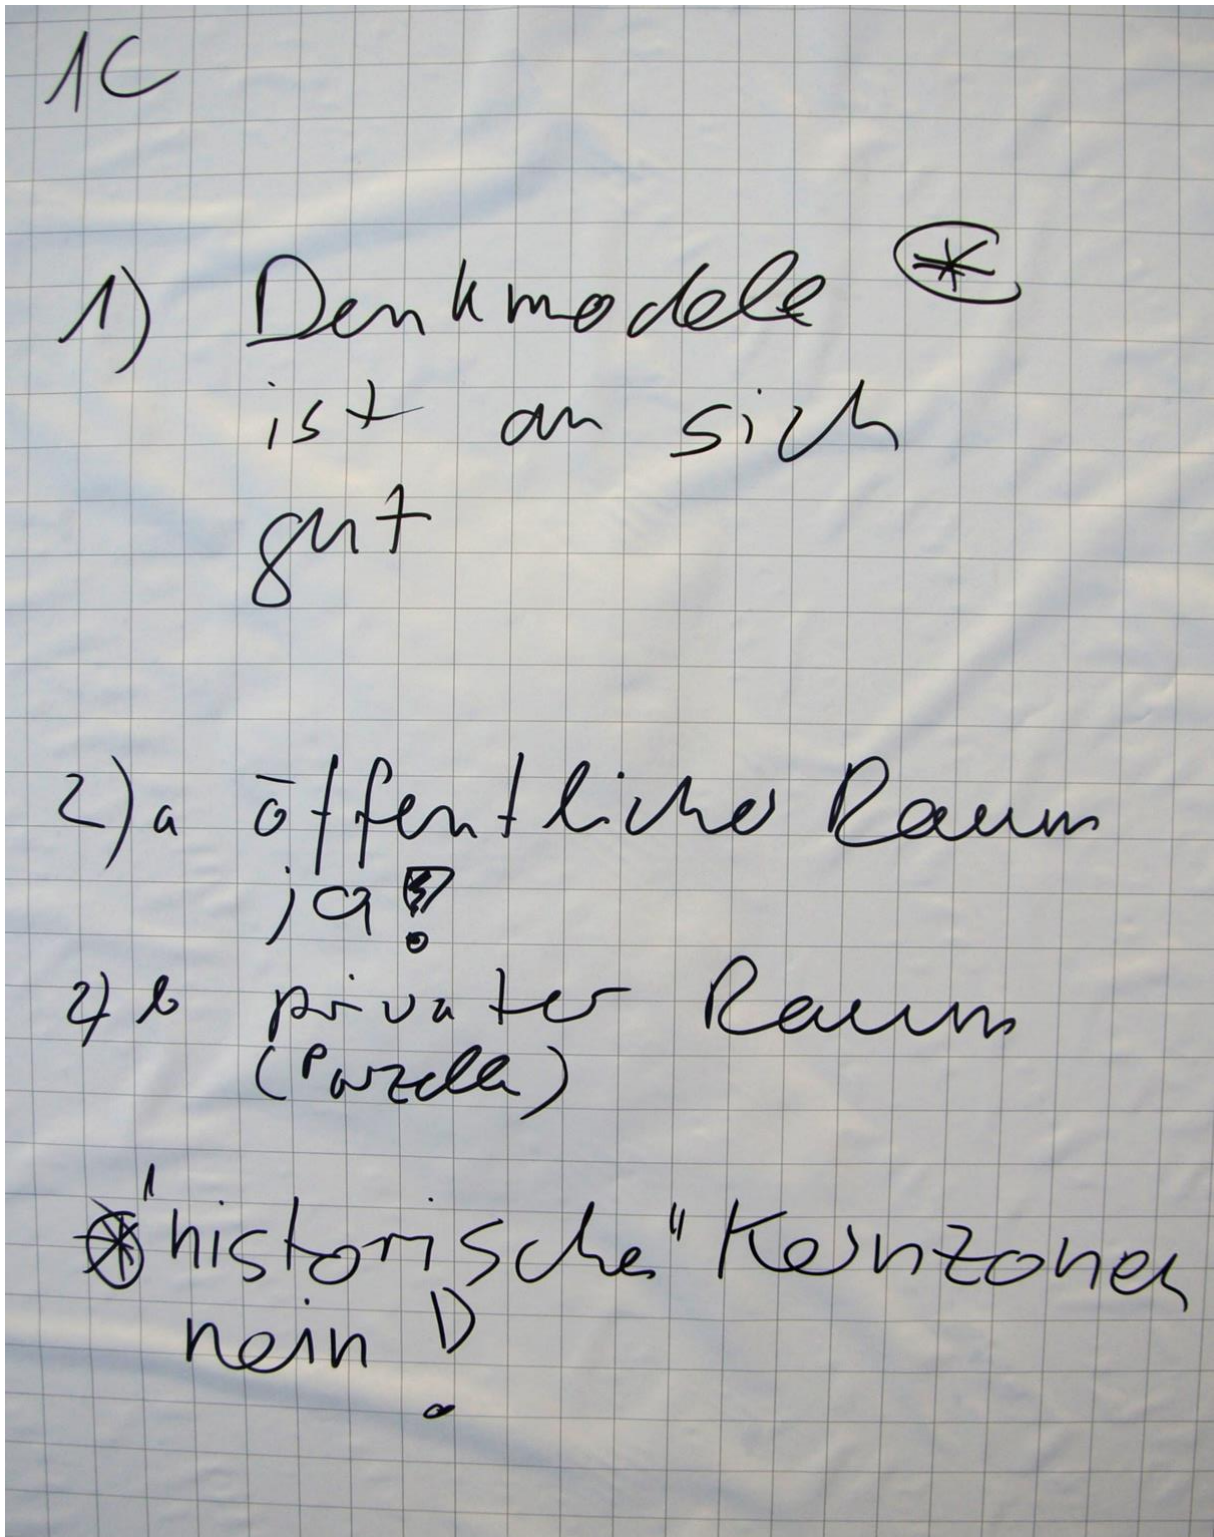 1C
1) Denkmodele *
ist an sich
gut
2) a öffentlicher Raum
ja!
2) b privater Raum
(Parzelle)
* "historische" Kernzonen
nein!